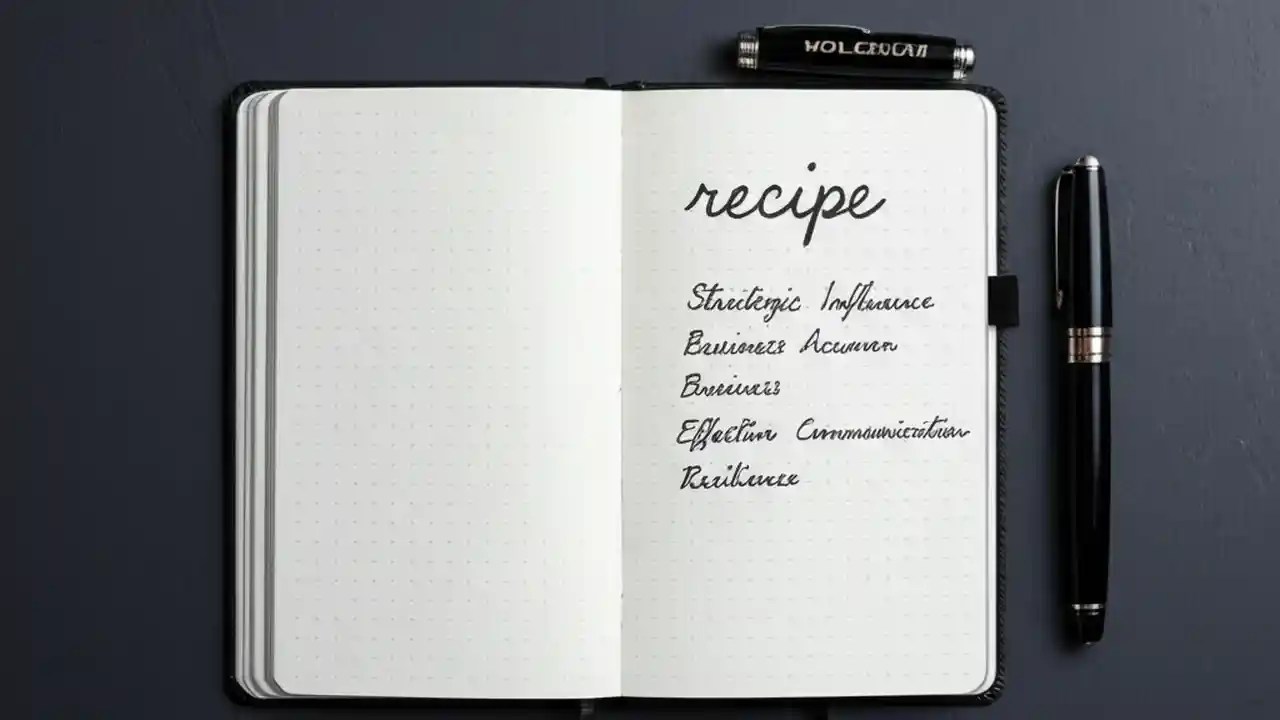 recipe
Strategic Influence
Business Acumen
Business
Effective Communication
Resilience